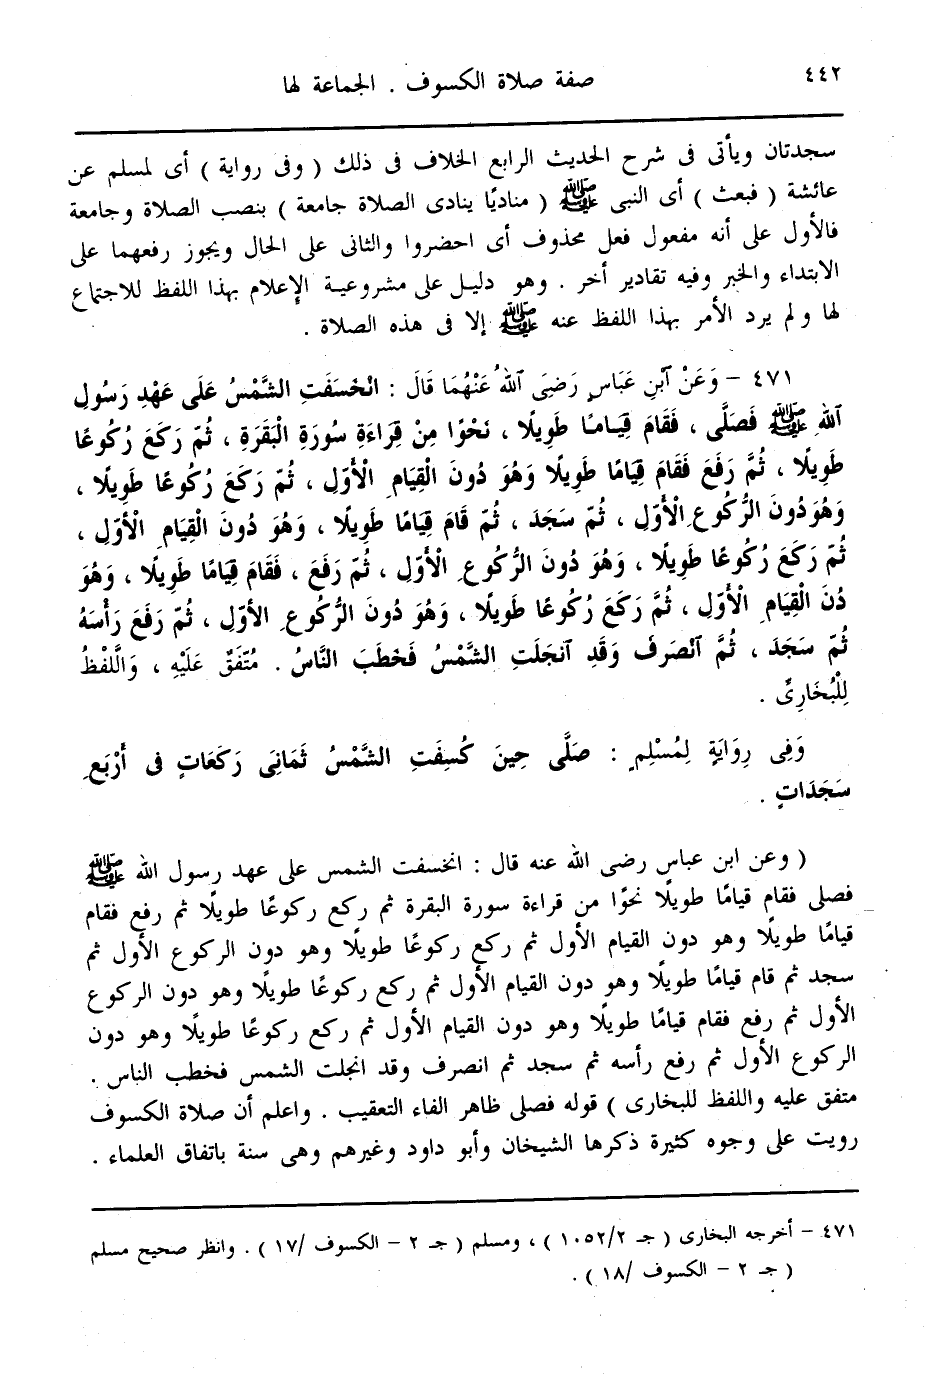 ٤٤٢
صفة صلاة الكسوف . الجماعة لها
سجدتان ويأتى فى شرح الحديث الرابع الخلاف فى ذلك ( وفى رواية ) أى لمسلم عن
عائشة ( فبعث ) أى النبى ﷺ ( مناديًا ينادى الصلاة جامعة ) بنصب الصلاة وجامعة
فالأول على أنه مفعول فعل محذوف أى احضروا والثانى على الحال ويجوز رفعهما على
الابتداء والخبر وفيه تقادير أخر . وهو دليل على مشروعية الإعلام بهذا اللفظ للاجتماع
لها ولم يرد الأمر بهذا اللفظ عنه ﷺ إلا فى هذه الصلاة .
٤٧١ – وَعَنْ آبنِ عَبَاسٍ رَضِىَ آللهُ عَنْهُمَا قَالَ : انْخَسَفَتِ الشَّمْسُ عَلَى عَهْدِ رَسُولِ
آللهِ ﷺ فَصَلَّى ، فَقَامَ قِيَامًا طَوِيلًا ، نَحْوًا مِنْ قِرَاءَةِ سُورَةِ الْبَقَرَةِ ، ثُمّ رَكَعَ رُكُوعًا
طَوِيلًا ، ثُمَّ رَفَعَ فَقَامَ قِيَامًا طَوِيلًا وَهُوَ دُونَ الْقِيَامِ الْأَوّلِ ، ثُمّ رَكَعَ رُكُوعًا طَوِيلًا ،
وَهُوَ دُونَ الرُّكُوعِ الْأَوّلِ ، ثُمّ سَجَدَ ، ثُمّ قَامَ قِيَامًا طَوِيلًا ، وَهُوَ دُونَ الْقِيَامِ الْأَوّلِ ،
ثُمّ رَكَعَ رُكُوعًا طَوِيلًا ، وَهُوَ دُونَ الرُّكُوعِ الْأَوّلِ ، ثُمّ رَفَعَ ، فَقَامَ قِيَامًا طَوِيلًا ، وَهُوَ
دُنَ الْقِيَامِ الْأَوّلِ ، ثُمَّ رَكَعَ رُكُوعًا طَوِيلًا ، وَهُوَ دُونَ الرُّكُوعِ الأوّلِ ، ثُمّ رَفَعَ رَأْسَهُ
ثُمّ سَجَدَ ، ثُمَّ آنْصَرَفَ وَقَدِ آنجَلَتِ الشَّمْسُ فَخَطَبَ النَّاسُ . مُتّفَقٌ عَلَيْهِ ، وَالَّلفْظُ
لِلْبُخَارِىِّ .
وَفِى رِوَايَةٍ لِمُسْلِمٍ : صَلَّى حِينَ كُسِفَتِ الشَّمْسُ ثَمَانِىَ رَكَعَاتٍ فى أَرْبَعِ
سَجَدَاتٍ .
( وعن ابن عباس رضى الله عنه قال : انخسفت الشمس على عهد رسول الله ﷺ
فصلى فقام قيامًا طويلًا نحوًا من قراءة سورة البقرة ثم ركع ركوعًا طويلًا ثم رفع فقام
قيامًا طويلًا وهو دون القيام الأول ثم ركع ركوعًا طويلًا وهو دون الركوع الأول ثم
سجد ثم قام قيامًا طويلًا وهو دون القيام الأول ثم ركع ركوعًا طويلًا وهو دون الركوع
الأول ثم رفع فقام قيامًا طويلًا وهو دون القيام الأول ثم ركع ركوعًا طويلًا وهو دون
الركوع الأول ثم رفع رأسه ثم سجد ثم انصرف وقد انجلت الشمس فخطب الناس .
متفق عليه واللفظ للبخارى ) قوله فصلى ظاهر الفاء التعقيب . واعلم أن صلاة الكسوف
رويت على وجوه كثيرة ذكرها الشيخان وأبو داود وغيرهم وهى سنة باتفاق العلماء .
٤٧١ – أخرجه البخارى ( جـ ١٠٥٢/٢ ) ، ومسلم ( جـ ٢ – الكسوف /١٧ ) . وانظر صحيح مسلم
( جـ ٢ – الكسوف /١٨ ) .